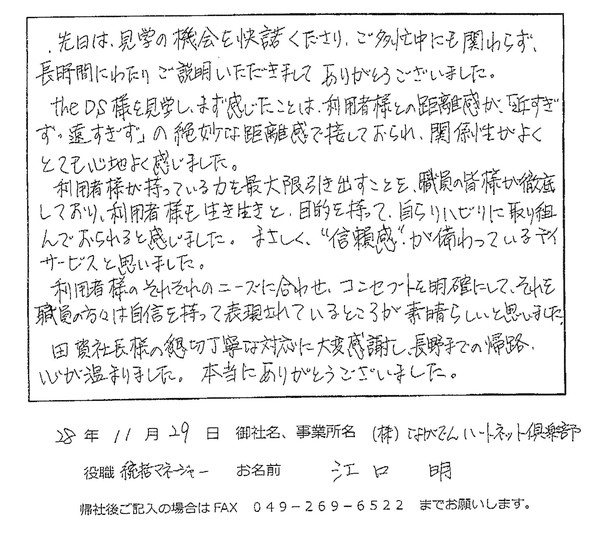 先日は、見学の機会を快諾くださり、ご多忙中にも関わらず、
長時間にわたりご説明いただきまして ありがとうございました。
the DS様を見学し、まず感じたことは、利用者様との距離感が、「近すぎ
ず・遠すぎず」の絶妙な距離感で接しておられ、関係性がよく
とても心地よく感じました。
利用者様が持っている力を最大限引き出すことを、職員の皆様が徹底
しており、利用者様も生き生きと、目的を持って、自らリハビリに取り組
んでおられると感じました。まさしく、“信頼感”が備わっているデイ
サービスと思いました。
利用者様のそれぞれのニーズに合わせ、コンセプトを明確にして、それを
職員の方々は自信を持って表現されているところが素晴らしいと思いました。
田賀社長様の懇切丁寧な対応に大変感謝し、長野までの帰路、
心が温まりました。本当にありがとうございました。
28 年 11 月 29 日 御社名、事業所名 (株)ながでんハートネット倶楽部
役職 統括マネージャー お名前 江口 明
帰社後ご記入の場合はFAX 049-269-6522 までお願いします。